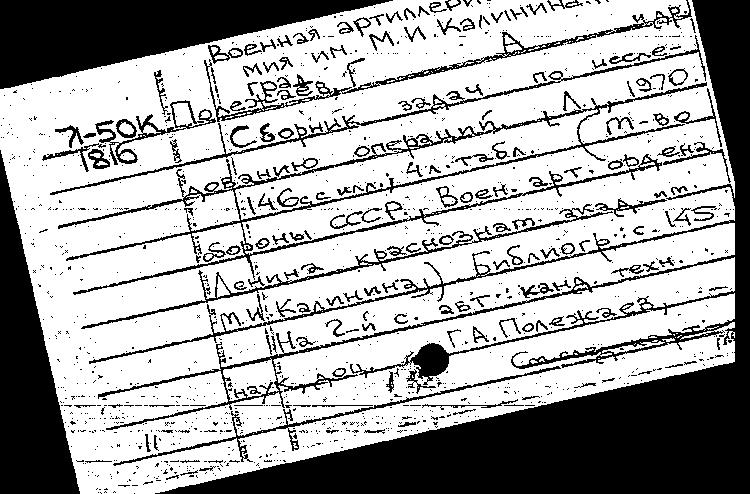 Военная артиллери
мия им. М.И. Калинина
град
Полежаев, Г А и др.
Л-50К
1816
Сборник задач по иссле-
дованию операций. [Л.], 1970.
146 с. с илл.; 4 л. табл. (М-во
обороны СССР. Воен. арт. ордена
Ленина краснознам. акад. им.
М.И. Калинина) Библиогр.: с. 145
На 2-й с. авт.: канд. техн.
наук, доц. Г.А. Полежаев,
См. след. карт.
11